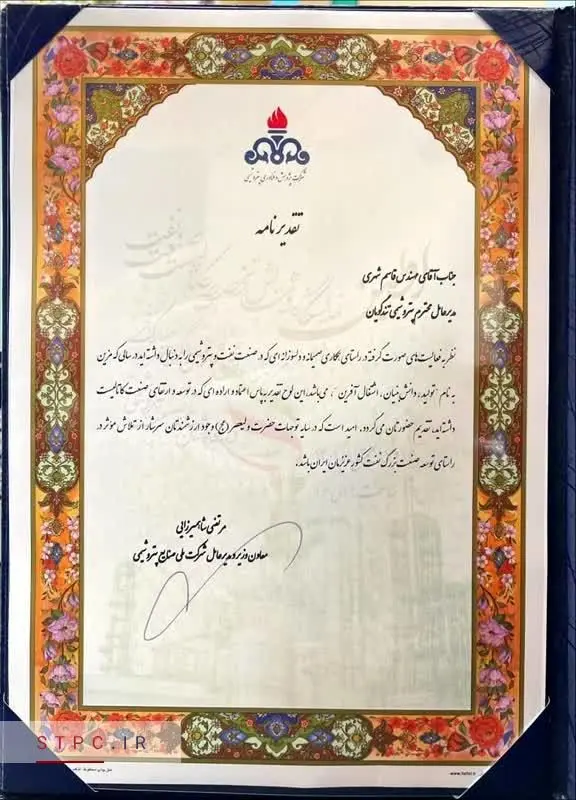 شرکت پژوهش و فناوری پتروشیمی
تقدیر نامه
جناب آقای مهندس قاسم شهری
مدیرعامل محترم پتروشیمی تندگویان
نظر به فعالیت‌های صورت گرفته در راستای همکاری صمیمانه و دلسوزانه ای که در صنعت نفت و پتروشیمی را به دنبال داشته اید در سالی که مزین
به نام "تولید، دانش بنیان، اشتغال آفرین"، می‌باشد، این لوح تقدیر به پاس اعتماد و اراده ای که در توسعه و ارتقای صنعت کاتالیست
داشته اید، تقدیم حضورتان می گردد. امید است که در سایه توجهات حضرت ولیعصر (عج) وجود ارزشمندتان سرشار از تلاش موثر در
راستای توسعه صنعت بزرگ نفت کشور عزیزمان ایران باشد.
مرتضی شاهمیرزایی
معاون وزیر و مدیرعامل شرکت ملی صنایع پتروشیمی
STPC.IR